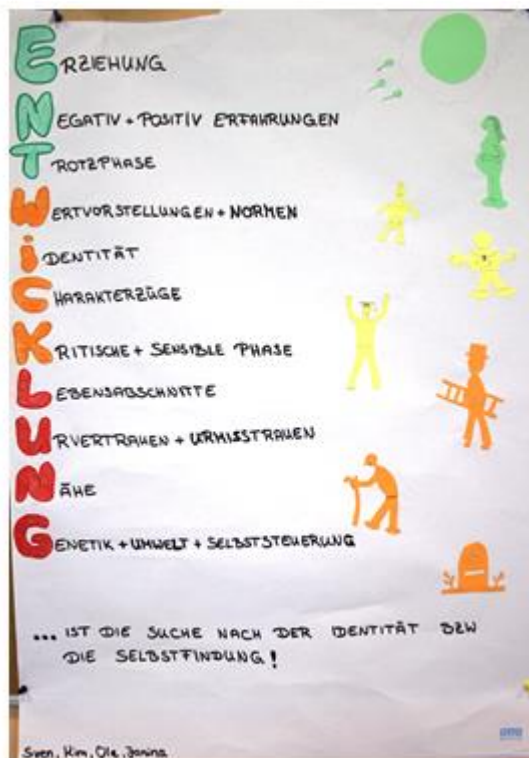 ERZIEHUNG
NEGATIV + POSITIV ERFAHRUNGEN
TROTZPHASE
WERTVORSTELLUNGEN + NORMEN
iDENTITÄT
CHARAKTERZÜGE
KRITISCHE + SENSIBLE PHASE
LEBENSABSCHNITTE
URVERTRAUEN + URMISSTRAUEN
NÄHE
GENETIK + UMWELT + SELBSTSTEUERUNG
... IST DIE SUCHE NACH DER IDENTITÄT BZW
DIE SELBSTFINDUNG!
Sven, Kim, Ole, Janina